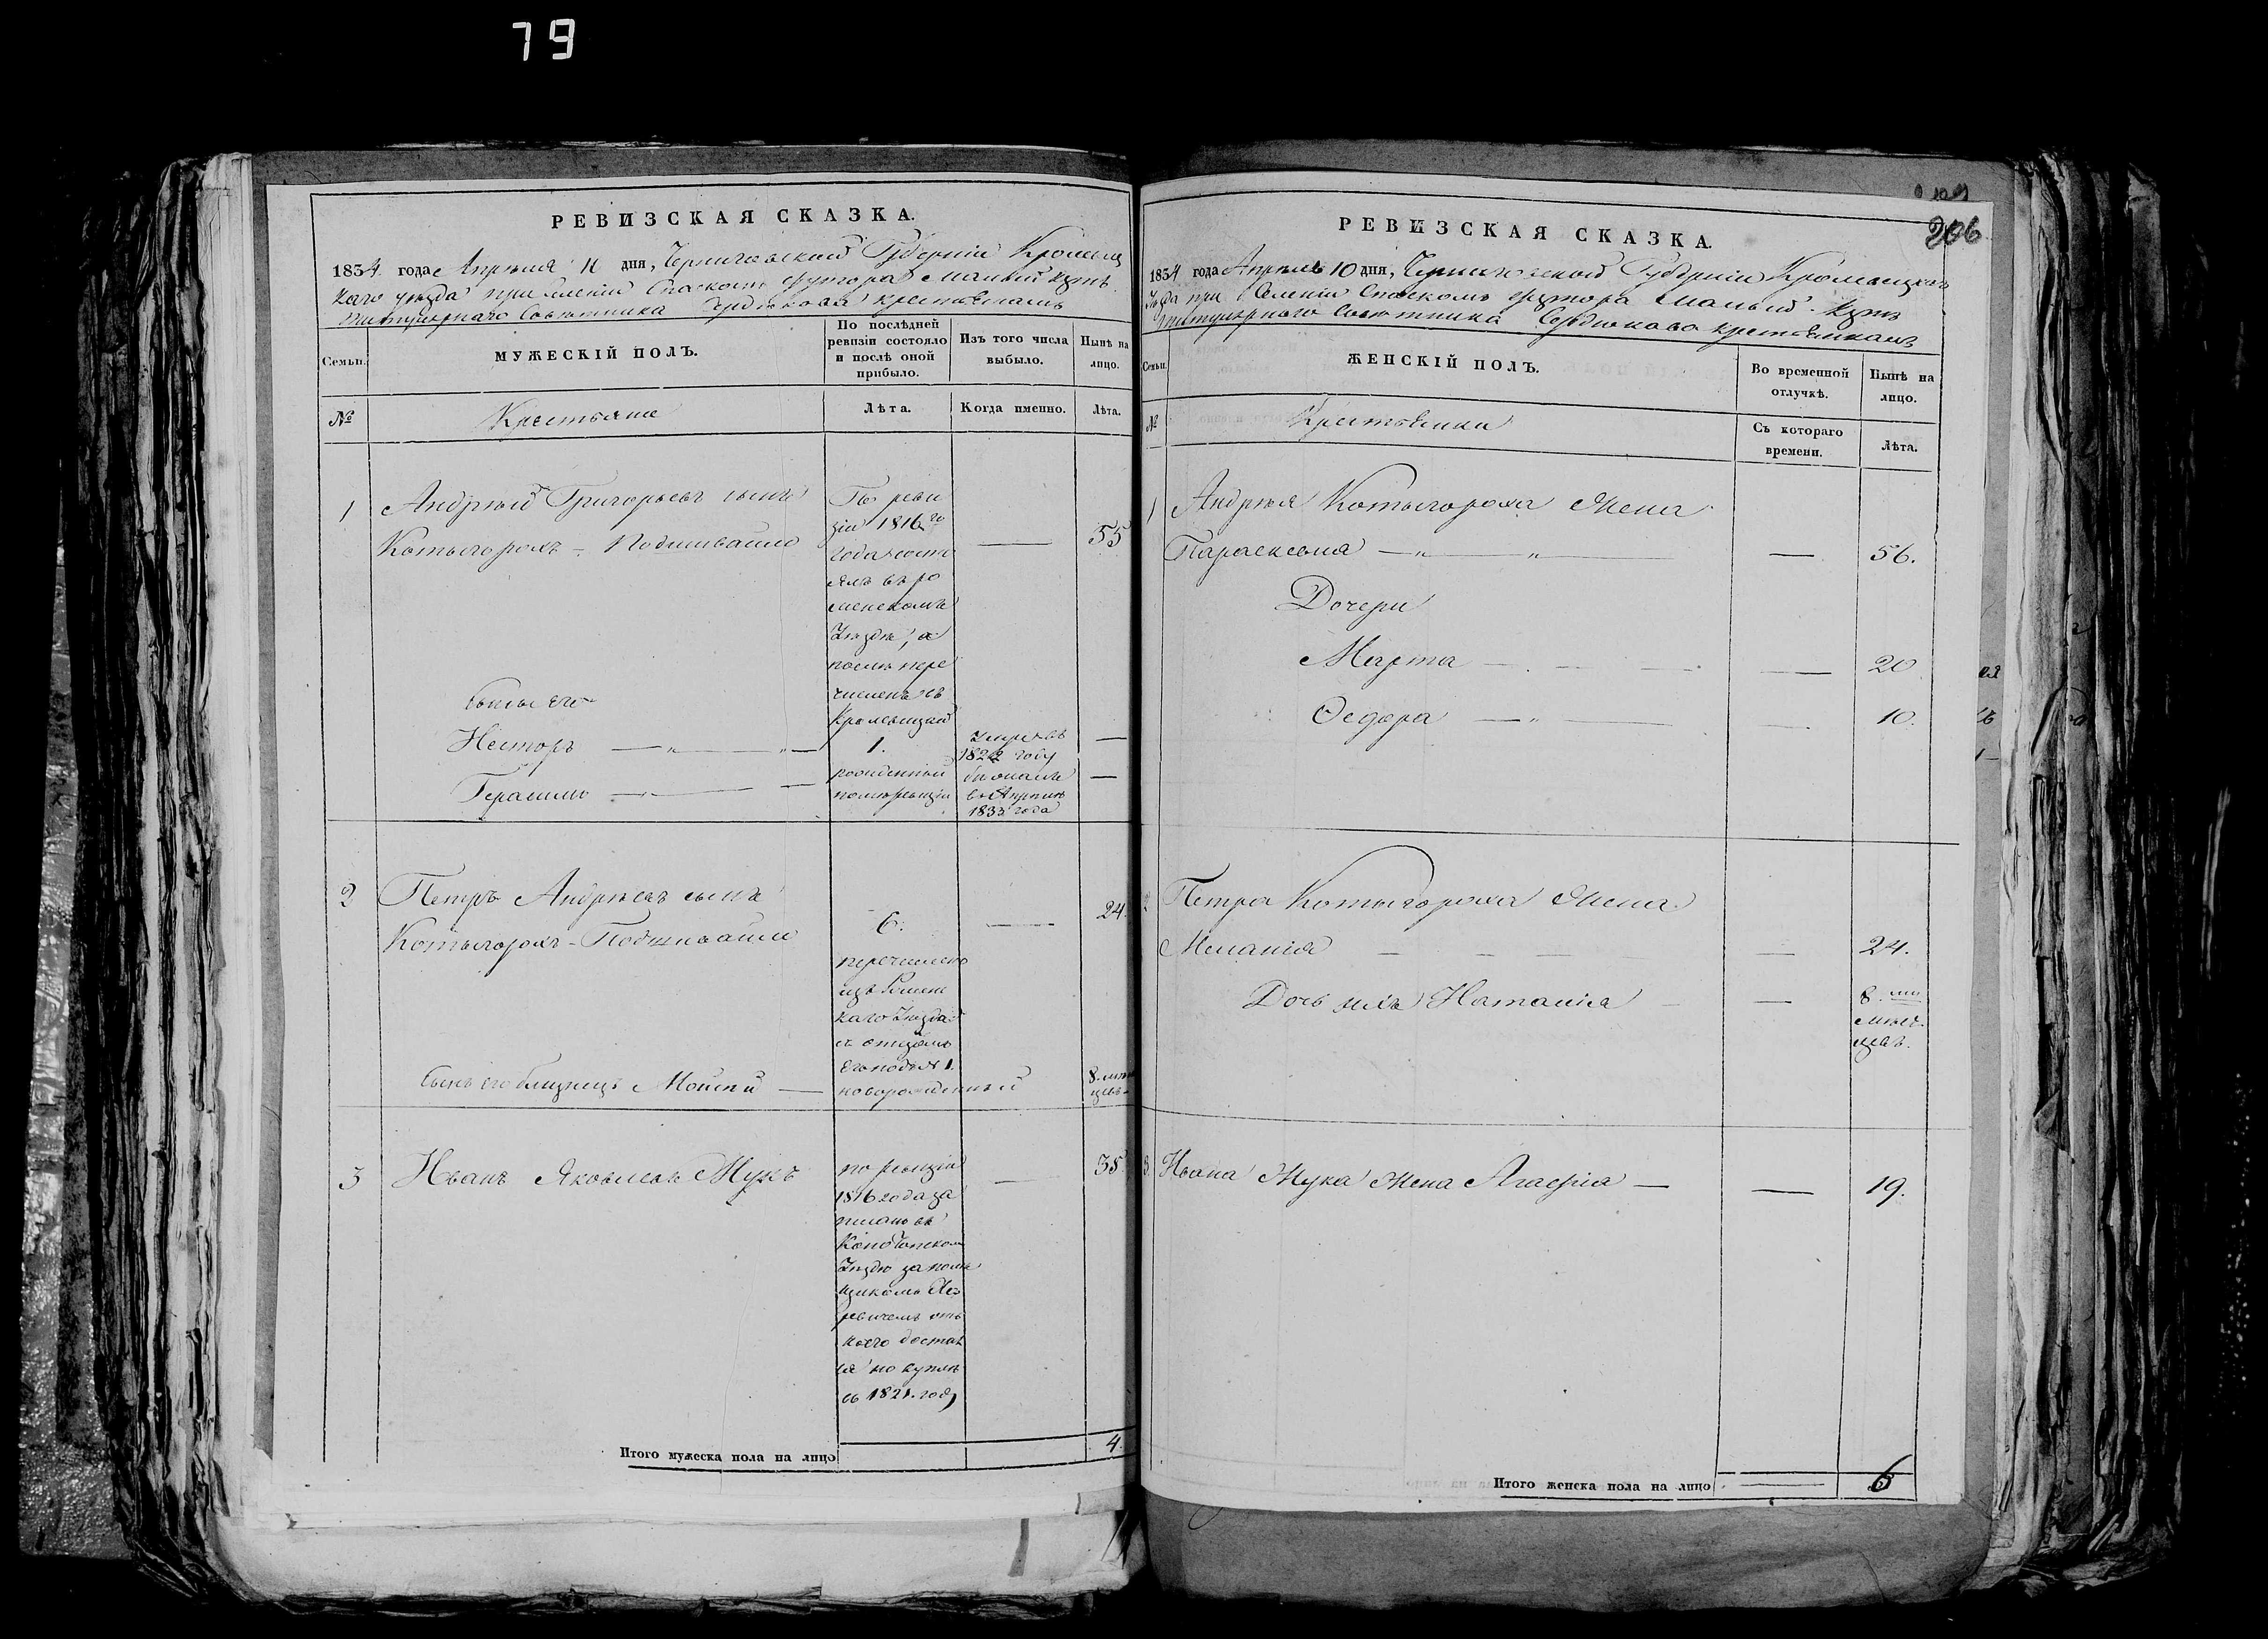 79
РЕВИЗСКАЯ СКАЗКА.
1834 года Апреля 11 дня, Черниговской Губерніи Кролевец
каго уезда при Селеніи Спаском хутора Малый Кутъ
титулярнаго Советника Сердюкова крестьянамъ
Семьи.
МУЖЕСКІЙ ПОЛЪ.
По послѣдней ревизіи состояло и послѣ оной прибыло.
Изъ того числа выбыло.
Нынѣ на лицо.
№
Крестьяне
Лѣта.
Когда именно.
Лѣта.
1
Андрѣй Григорьевъ сынъ
Котыгорохъ - Подшивайло
По реви
зіи 1816 го
года состо
ялъ въ Ро
менскомъ
Уездѣ, а
после пере
численъ въ
Кролевецкій
55
сыны его
Несторъ
1.
умре въ
1822 году
Герасимъ
рожденный
после ревизіи
въ Апреле
1833 года
2
Петръ Андрѣевъ сынъ
Котыгорохъ - Подшивайло
6.
24.
перечисленъ
изъ Ромен
каго Уезда
съ отцомъ
его подъ № 1.
сынъ его близнецъ Моисей
новорожденный
8. меся
цевъ
3
Иванъ Яковлевъ Мукъ
по ревизіи
1816 года за
писанъ въ
Конотопском
Уездѣ за поме
щикомъ
отъ
коего достал
ся по купле
въ 1821. году
38
Итого мужеска пола на лицо
4.
206
РЕВИЗСКАЯ СКАЗКА.
1834 года Апреля 10 дня, Черниговской Губерніи Кролевецкаго
Уезда при Селеніи Спаскомъ хутора Малый Кутъ
титулярнаго Советника Сердюкова крестьянамъ
Семьи.
ЖЕНСКІЙ ПОЛЪ.
Во временной отлучкѣ.
Нынѣ на лицо.
№
Крестьянки
Съ котораго времени.
Лѣта.
1
Андрѣя Котыгороха Жена
Параскевия
56.
Дочери
Марта
20
Федора
10.
2
Петра Котыгороха Жена
Меланія
24.
Дочь ихъ Наталія
8. ми
месе
цевъ.
3.
Ивана Мука Жена Агафія
19.
Итого женска пола на лицо
6